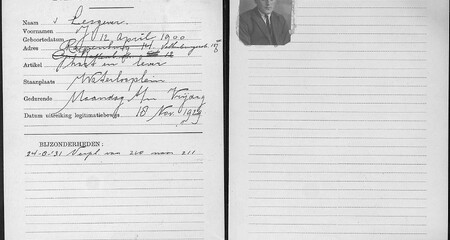 Naam : Lesgever.
Voornamen J
Geboortedatum 12 April 1900
Adres
Artikel hart en lever
Staanplaats Waterlooplein
Gedurende Maandag t/m Vrijdag
Datum uitreiking legitimatiebewijs 18 Nov 1929
BIJZONDERHEDEN:
24-8-'31 Verpl van 260 naar 211